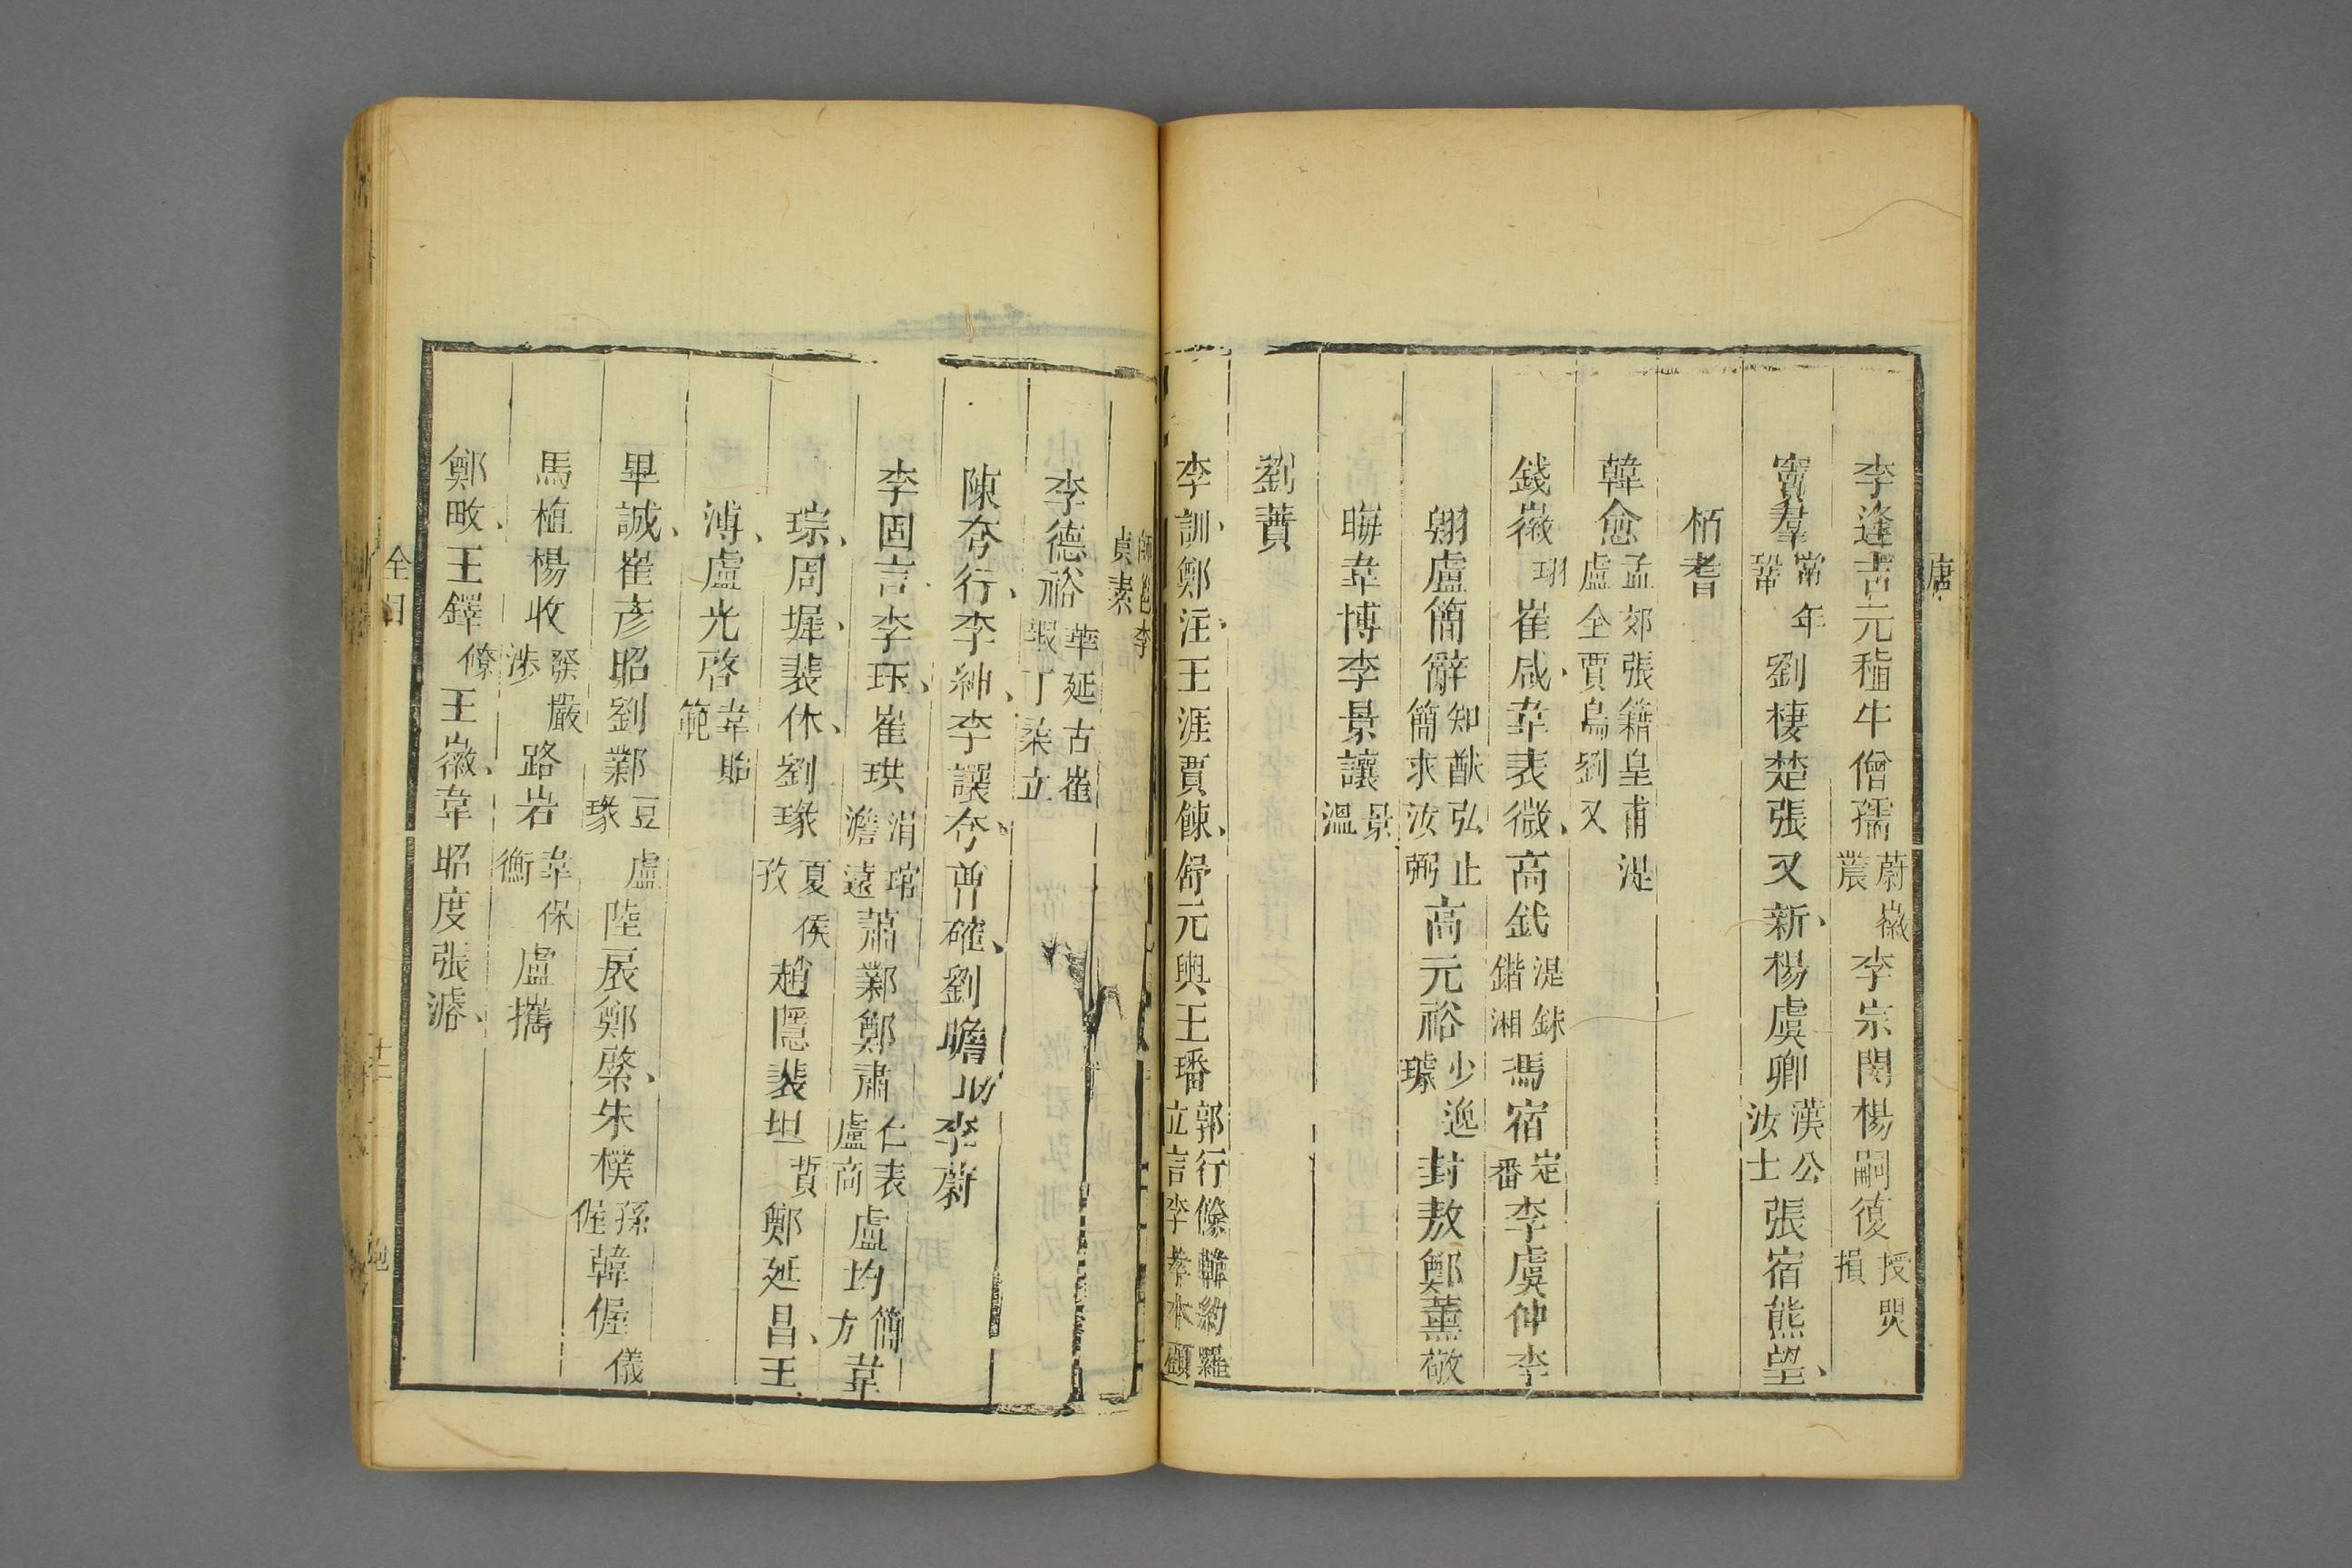 唐
李逢吉元稹牛僧孺蔚徽叢李宗閔楊嗣復授煚損
竇羣常牟鞏劉棲楚張又新楊虞卿漢公汝士張宿熊望
栢耆
韓愈孟郊張籍皇甫湜盧仝賈島劉叉
錢徽珝崔咸韋表微高釴湜銖鍇湘馮宿定番李虞仲李
翺盧簡辭知猷弘止簡求汝弼高元裕少逸璩封敖鄭薰敬
晦韋博李景讓景溫
劉蕡
李訓鄭注王涯賈餗舒元輿王璠郭行餘韓約羅立言李孝本顧
師邕李貞素
李德裕華延古崔嘏丁柔立
陳夷行李紳李讓夷曹確劉瞻助李蔚
李固言李珏崔珙涓琯澹遠蕭鄴鄭肅仁表盧商盧均簡方韋
琮周墀裴休劉瑑夏侯孜趙隱裴坦贄鄭延昌王
溥盧光啓韋貽範
畢諴崔彦昭劉鄴豆盧瑑陸扆鄭綮朱樸孫偓韓偓儀
馬植楊收發嚴涉路岩韋保衡盧攜
鄭畋王鐸鐐王徽韋昭度張濬
全目
十二